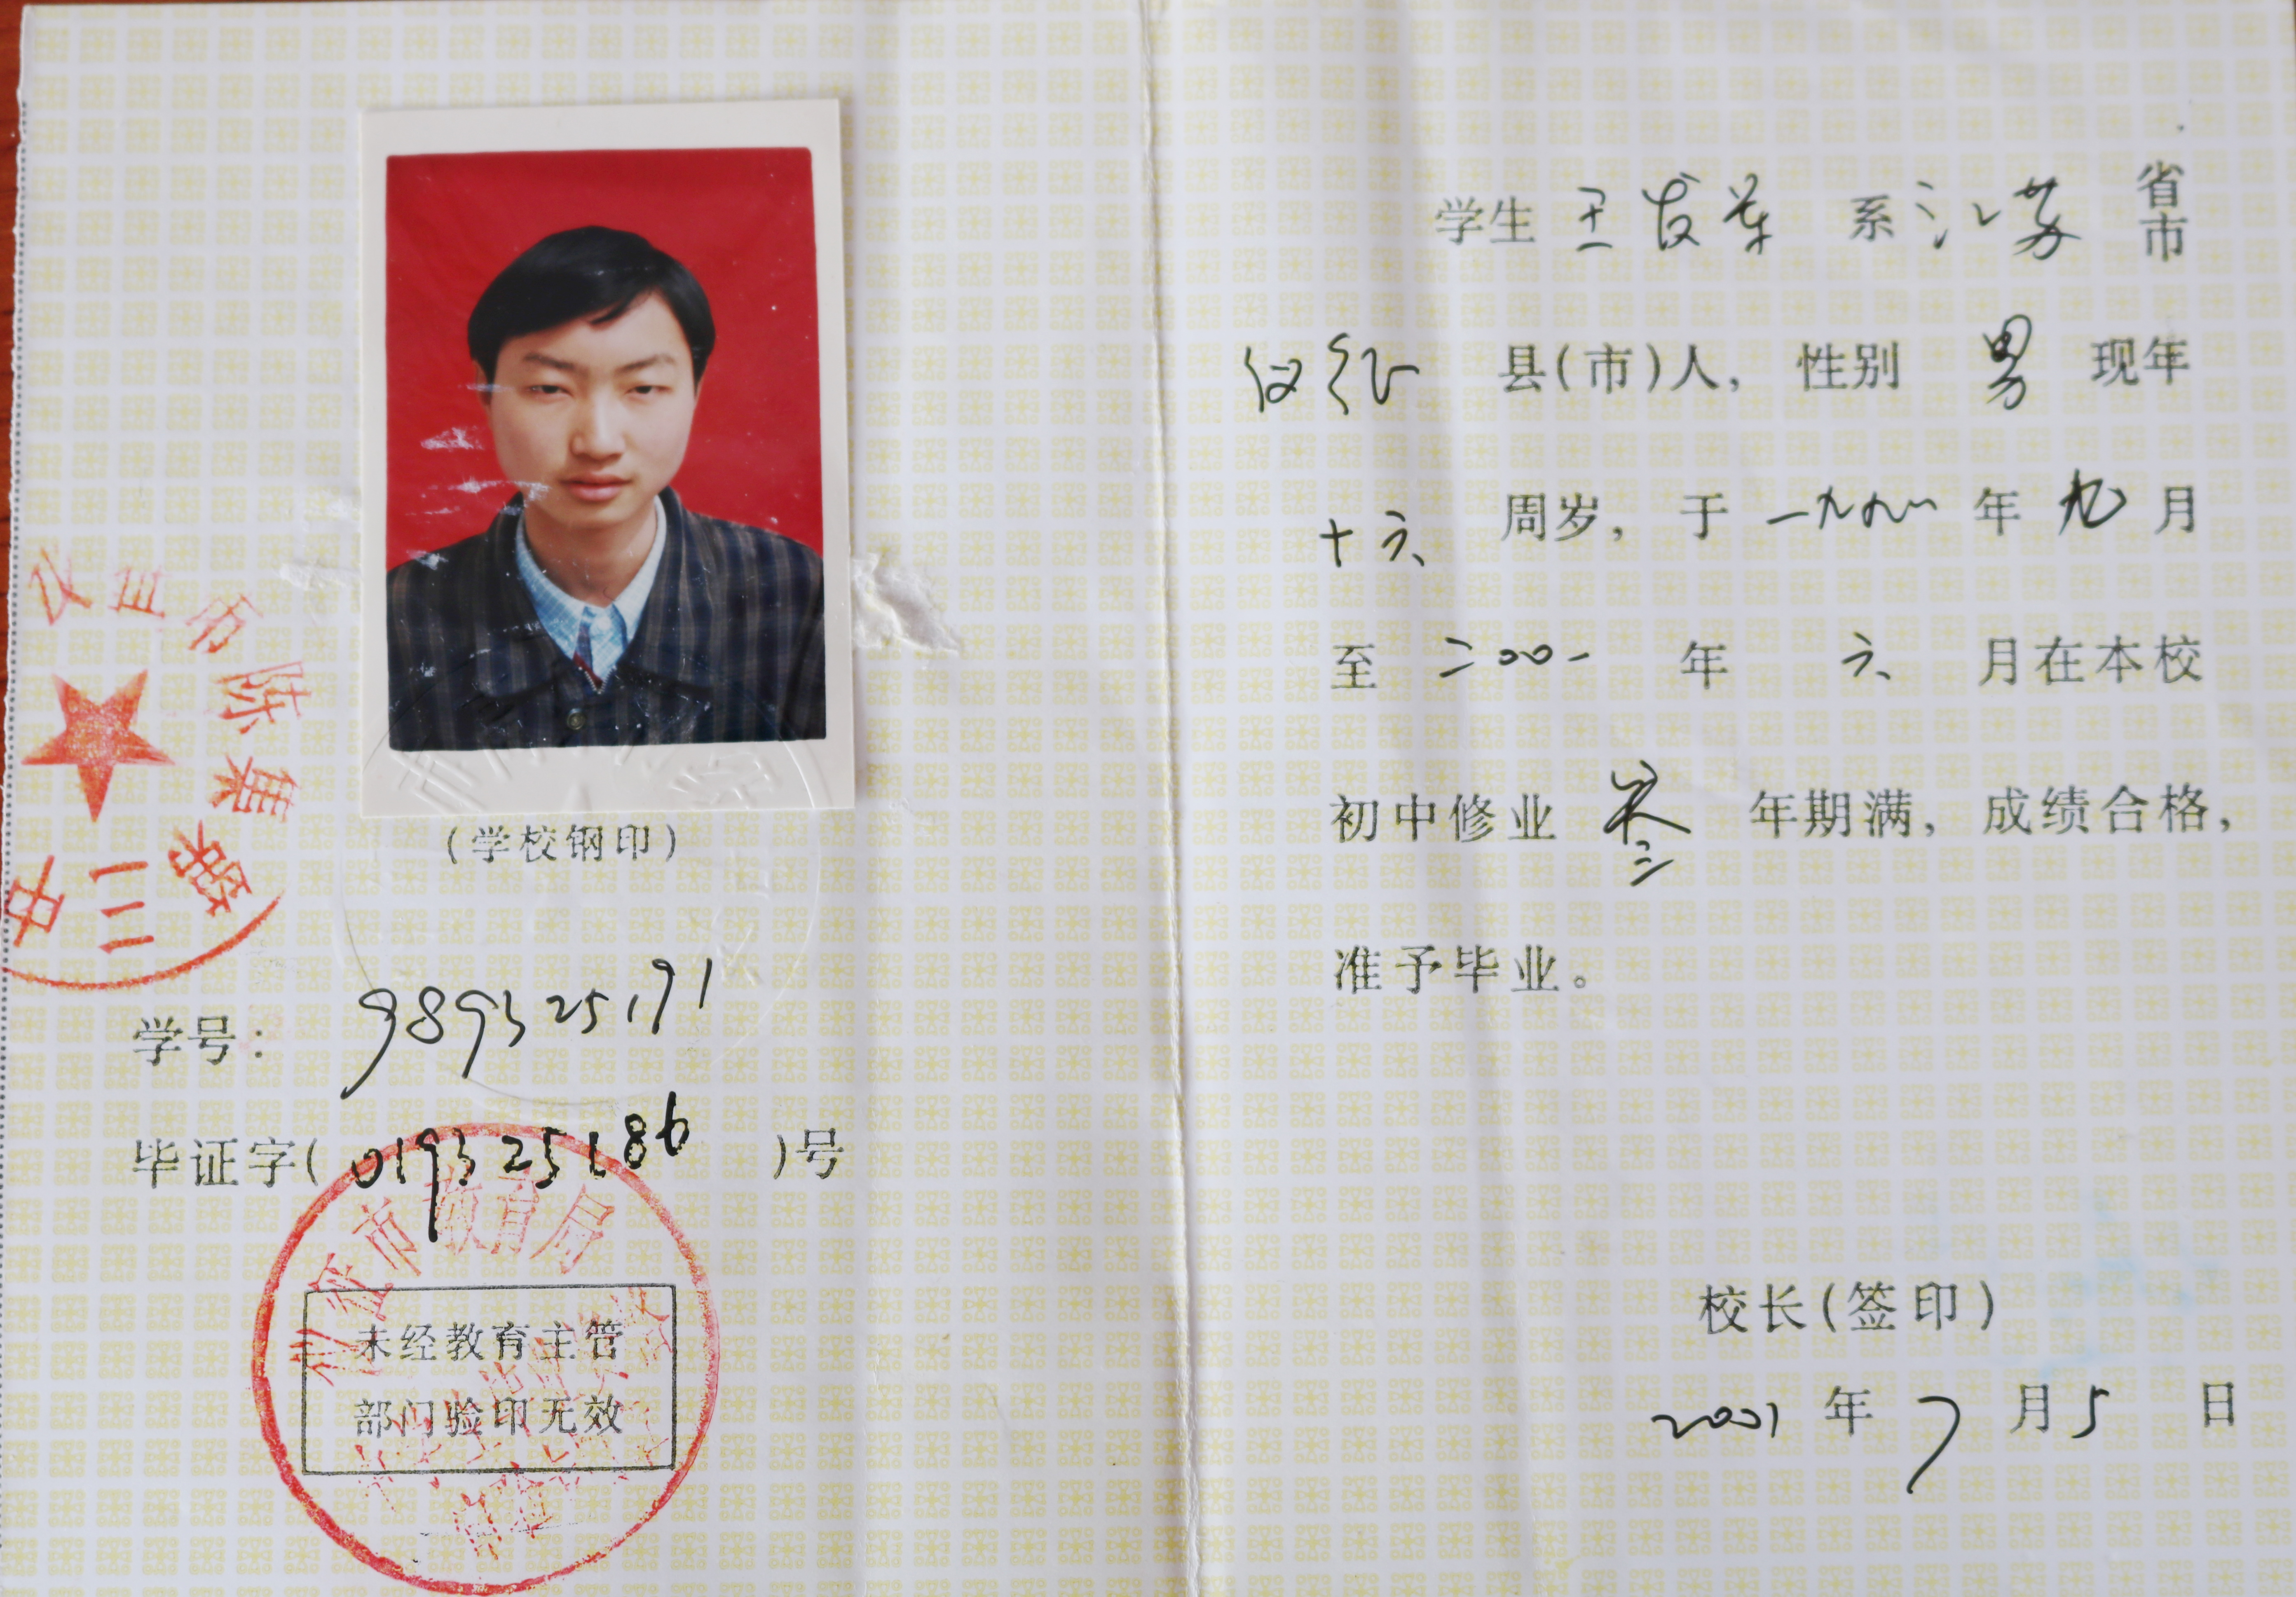 仪征市陈集第二中
(学校钢印)
学号: 989325191
毕证字(019325186)号
仪征市教育局
未经教育主管
部门验印无效
学生 王 系 江苏 省市
仪征 县(市)人, 性别 男 现年
十六 周岁, 于 一九九八 年 九 月
至 二〇〇一 年 六 月在本校
初中修业 叁 年期满, 成绩合格,
准予毕业。
校长(签印)
2001 年 7 月 5 日